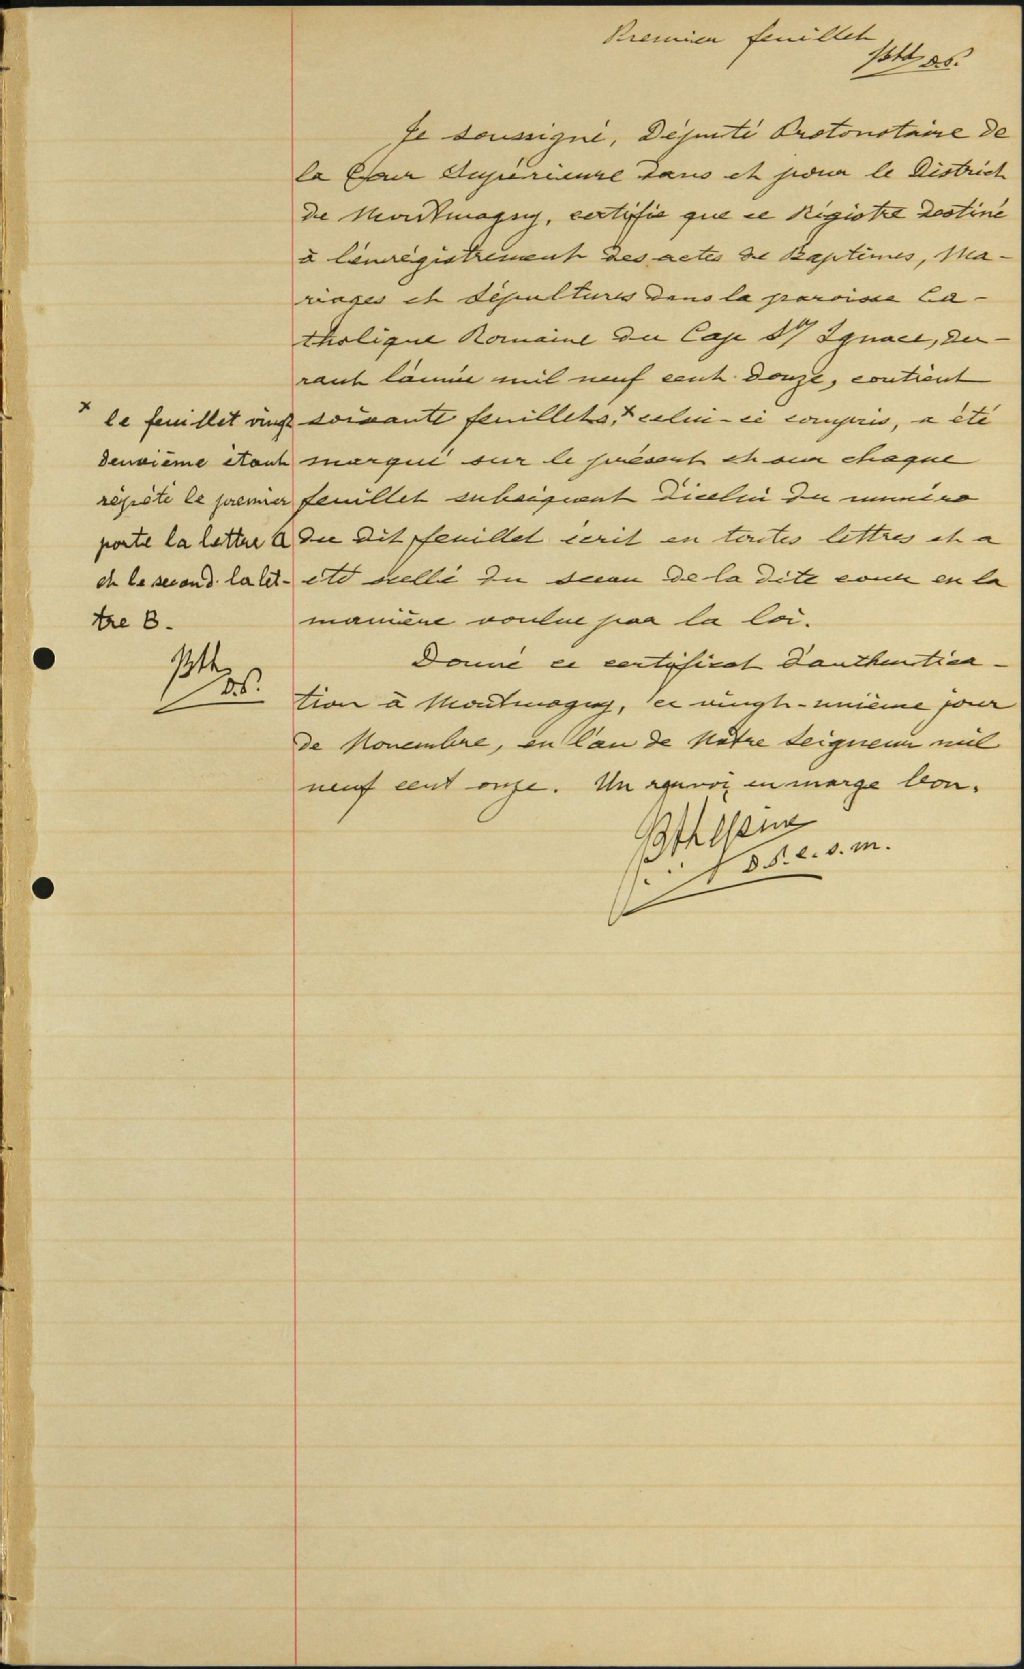 Premier feuillet
D.P.
Je soussigné, Député Protonotaire de
la Cour Supérieure dans et pour le District
de Montmagny, certifie que ce Régistre destiné
à l'enrégistrement des actes de Baptêmes, Ma-
riages et Sépultures dans la paroisse Ca-
tholique Romaine du Cap St Ignace, du-
rant l'année mil neuf cent douze, contient
soixante feuillets,x celui-ci compris, a été
marqué sur le présent et sur chaque
feuillet subséquent d'icelui du numéro
du dit feuillet écrit en toutes lettres et a
été scellé du sceau de la dite cour en la
manière voulue par la loi.
Donné ce certificat d'authentica-
tion à Montmagny, ce vingt-unième jour
de Novembre, en l'an de Notre Seigneur mil
neuf cent onze. Un renvoi en marge bon.
D.P.c.s.m.
x le feuillet vingt
deuxième étant
répété le premier
porte la lettre A
et le second la let-
tre B.
D.P.